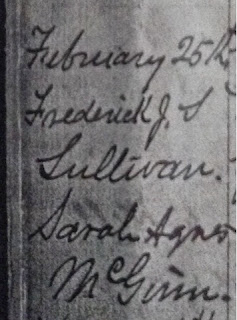 February 25th
Frederick J. S
Sullivan.
Sarah Agnes
McGinn.